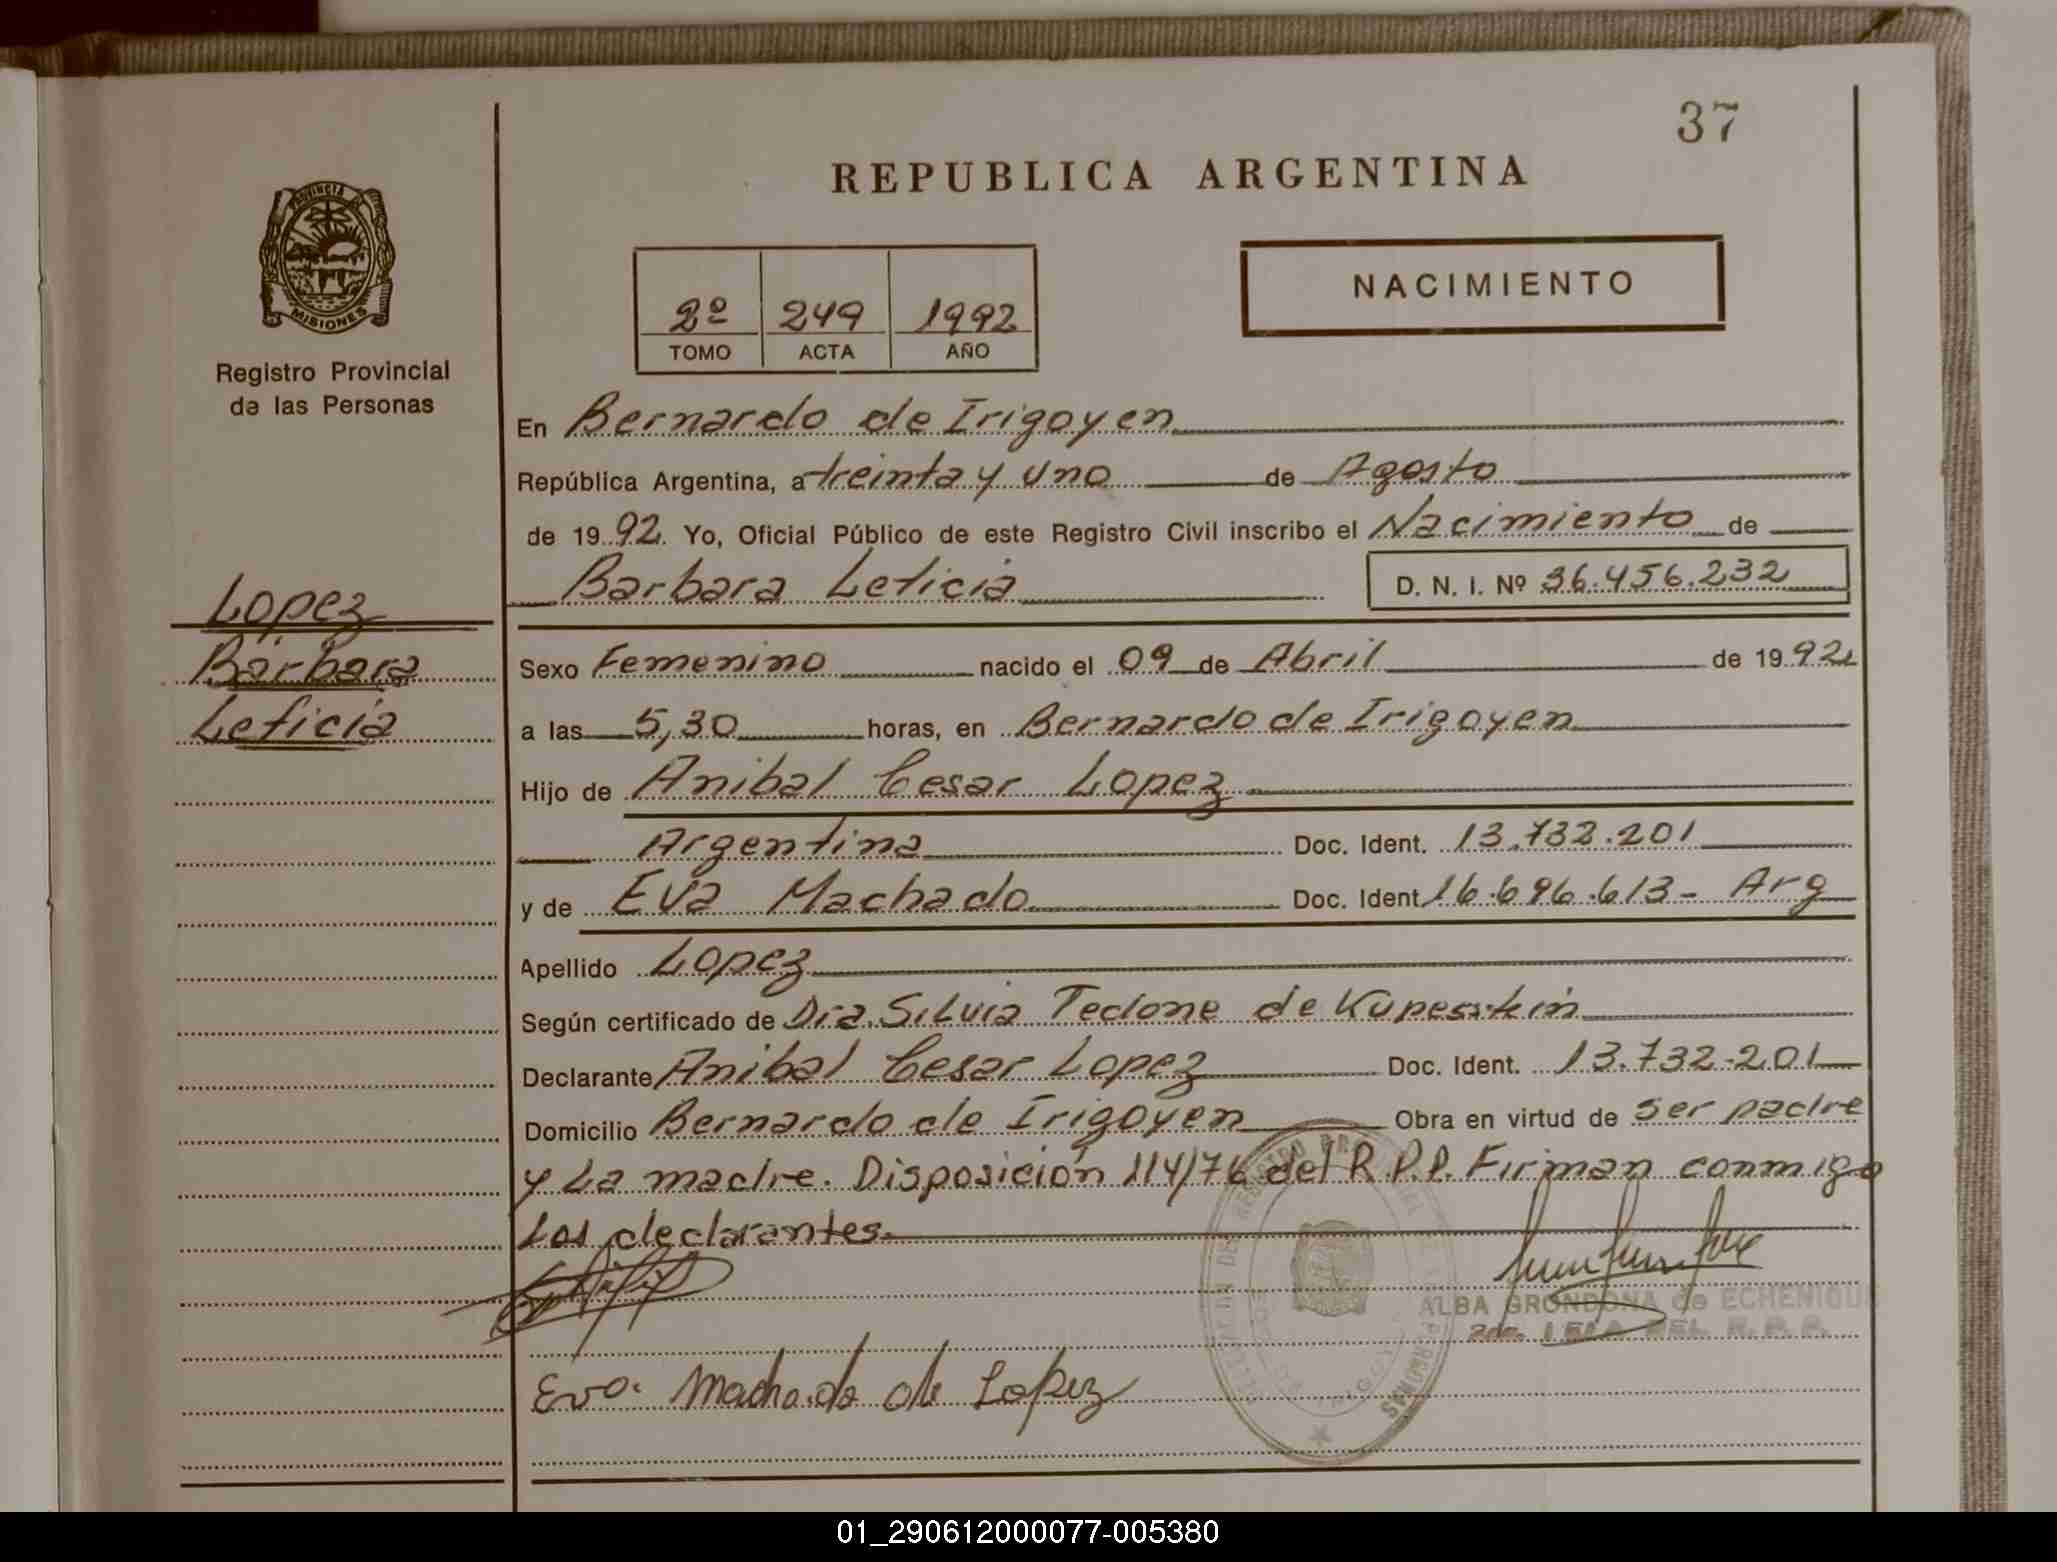 37
REPUBLICA ARGENTINA
PROVINCIA DE
MISIONES
Registro Provincial
de las Personas
2º 249 1992
TOMO ACTA AÑO
NACIMIENTO
En Bernardo de Irigoyen
República Argentina, a treinta y uno de Agosto
de 1992. Yo, Oficial Público de este Registro Civil inscribo el Nacimiento de
Barbara Leticia D. N. I. Nº 36.456.232
Lopez
Bárbara
Leticia
Sexo Femenino nacido el 09 de Abril de 1992
a las 5,30 horas, en Bernardo de Irigoyen
Hijo de Anibal Cesar Lopez
Argentina Doc. Ident. 13.732.201
y de Eva Machado Doc. Ident. 16.696.613- Arg
Apellido Lopez
Según certificado de Dra. Silvia Tedone de
Declarante Anibal Cesar Lopez Doc. Ident. 13.732.201
Domicilio Bernardo de Irigoyen Obra en virtud de ser padre
y La madre. Disposición 114/76 del R.P.P. Firman conmigo
Los declarantes.
ALBA GRONDONA de ECHENIQUE
DEL R. P. P.
Eva Machado de Lopez
01_290612000077-005380